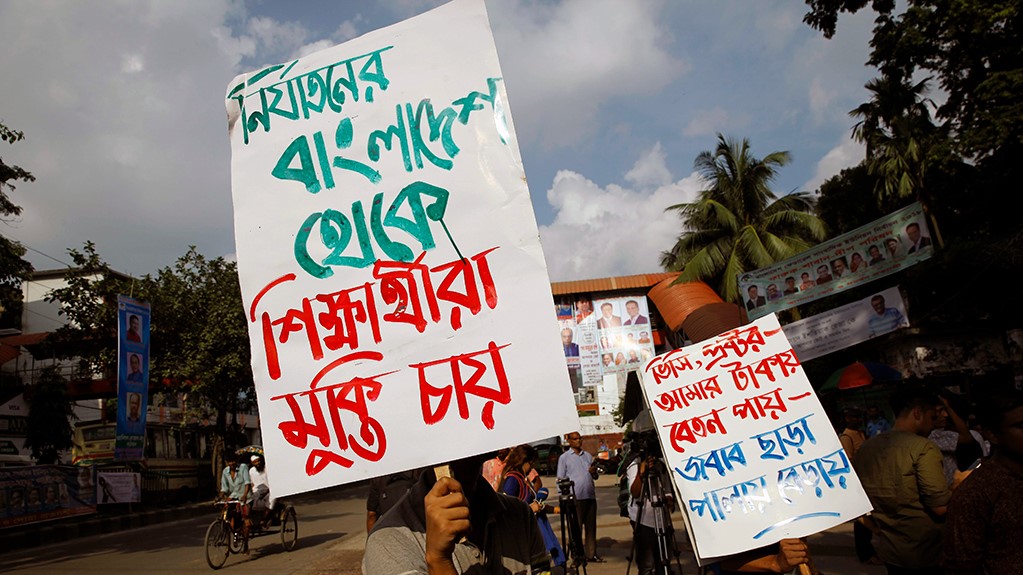 নির্যাতনের
বাংলাদেশ
থেকে
শিক্ষার্থীরা
মুক্তি চায়
ভিসি, প্রক্টর-
আমার টাকায়
বেতন পায়-
জবাব ছাড়া
পালায় বেড়ায়